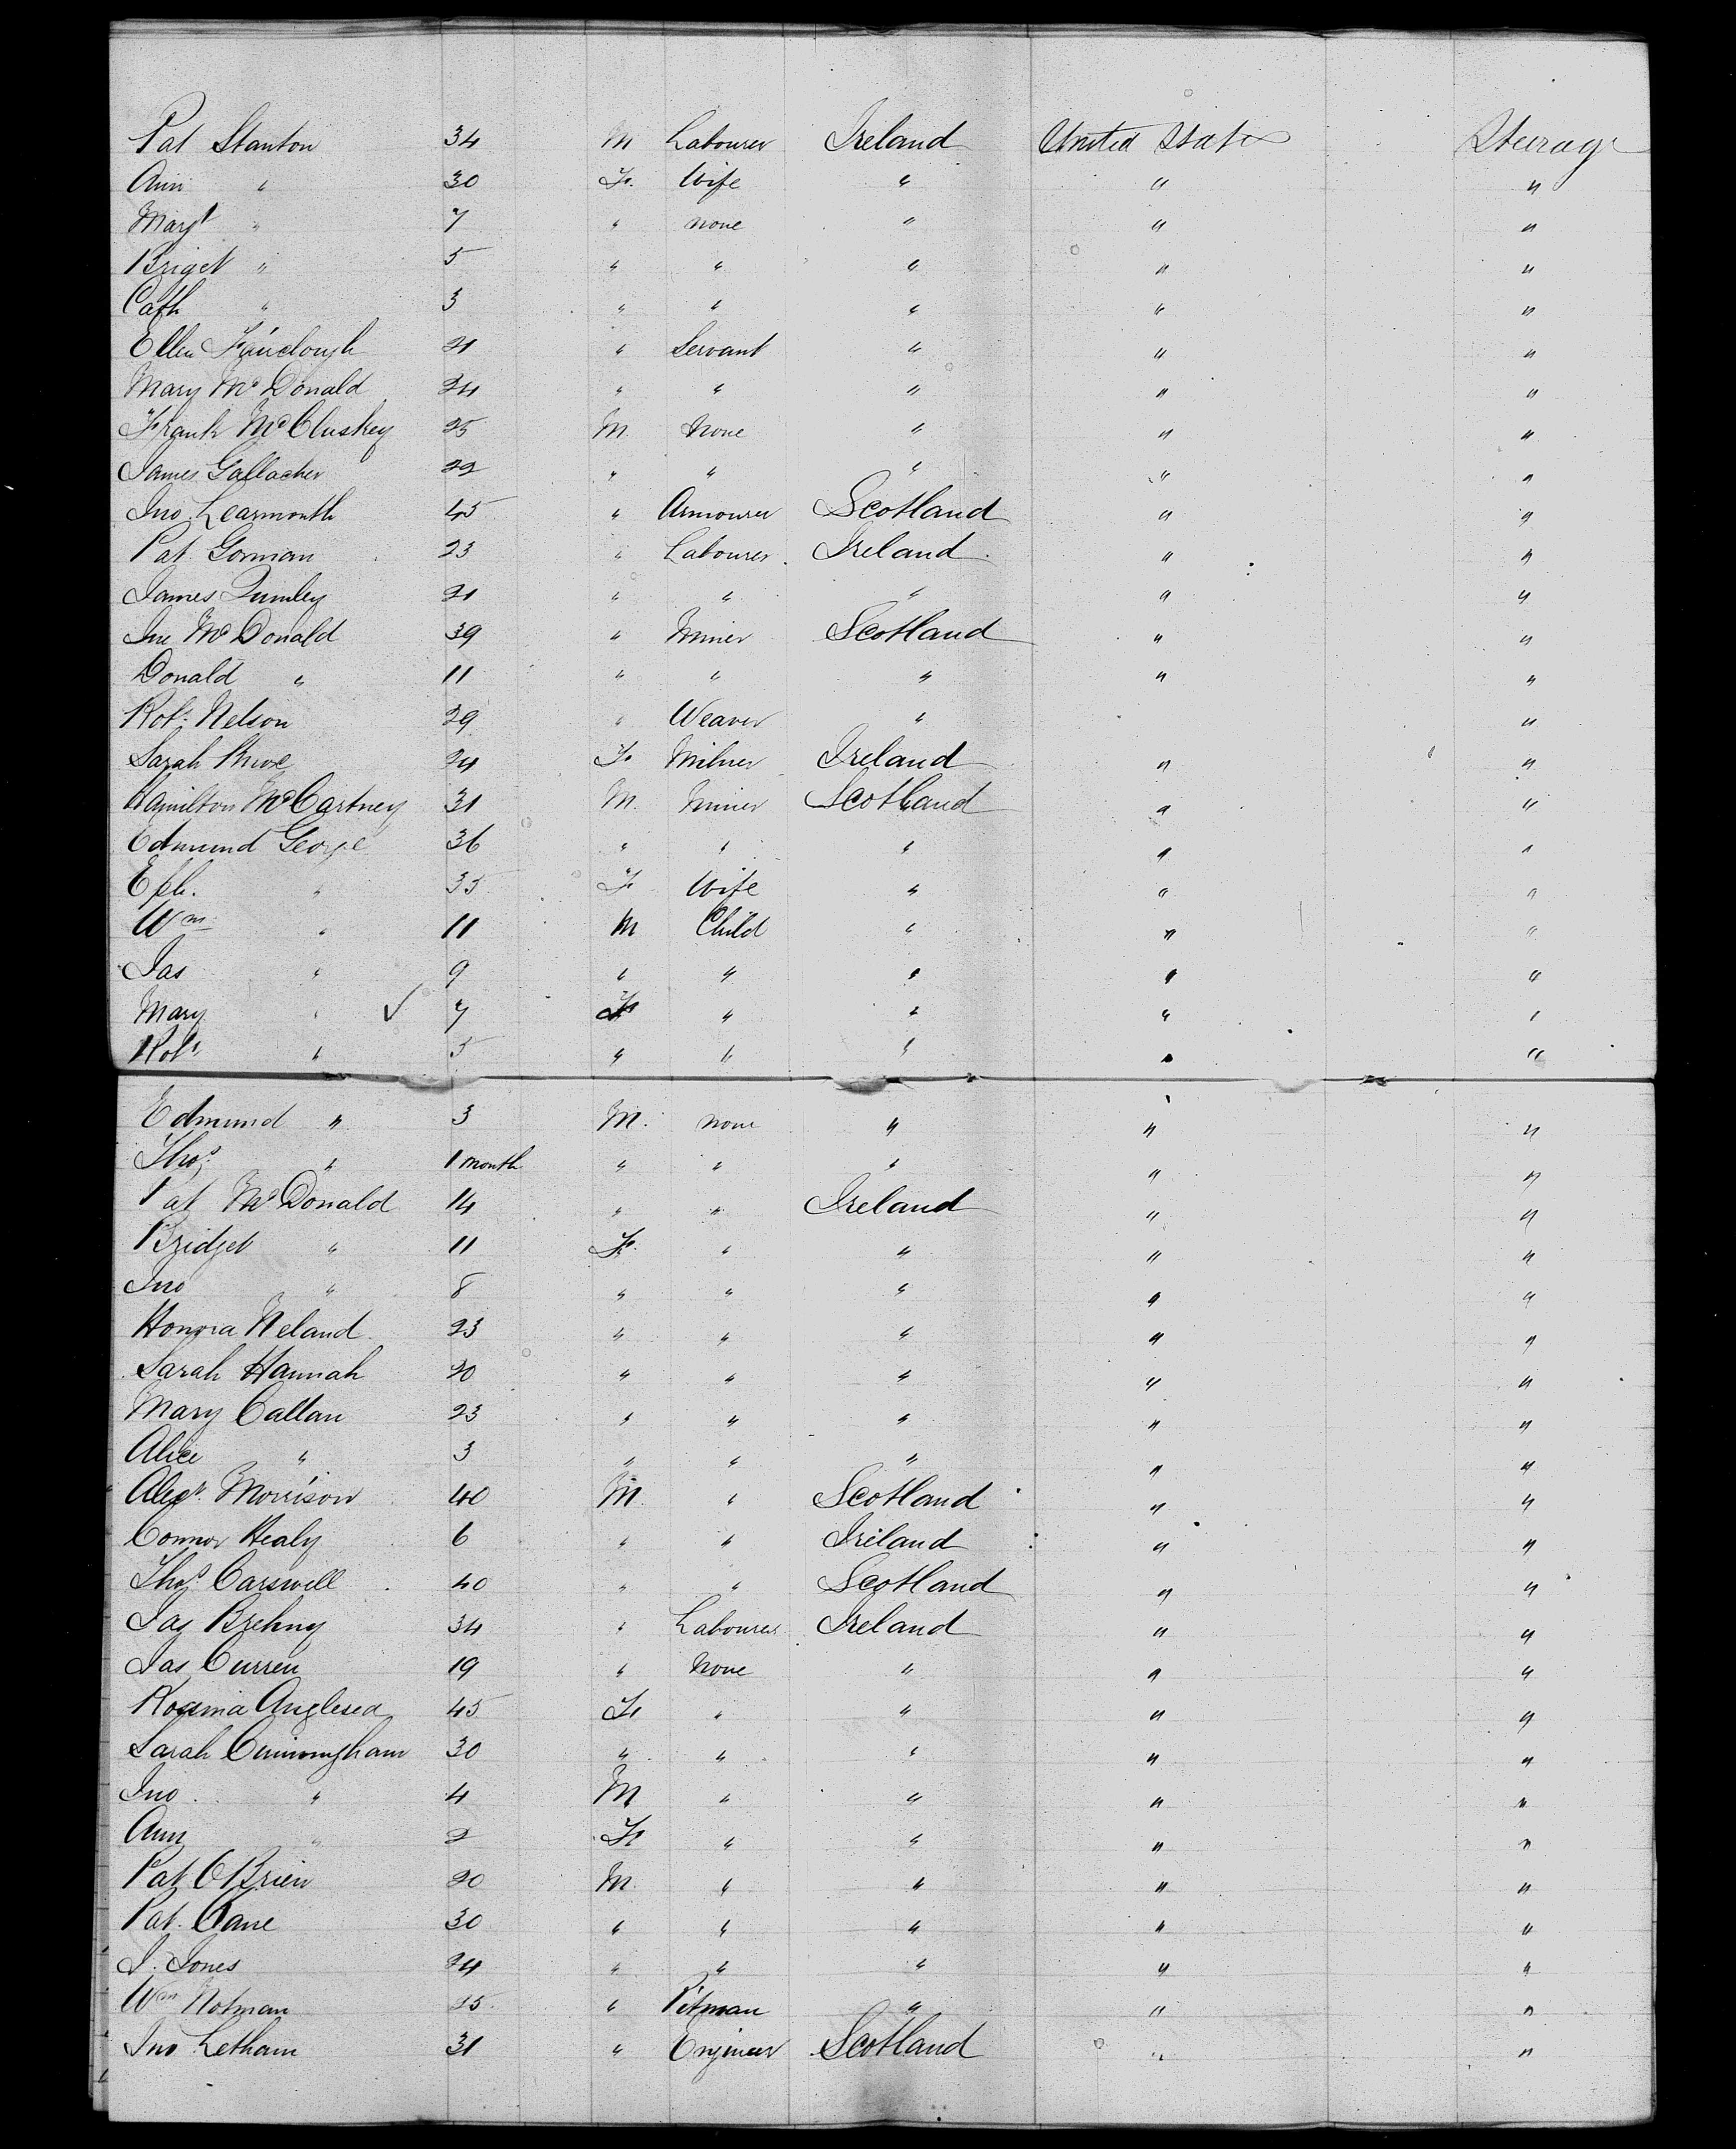 Pat Stanton 34 M Labourer Ireland United States Steerage
Ann " 30 F. Wife " " "
Margt " 7 " none " " "
Briget " 5 " " " " "
Cath " 3 " " " " "
Ellen Fairclough 21 " Servant " " "
Mary McDonald 24 " " " " "
Frank McCluskey 25 M. None " " "
James Gallacher 22 " " " " "
Jno. Learmonth 45 " Armourer Scotland " "
Pat Gorman 23 " Labourer Ireland " "
James Tumley 21 " " " " "
Jno McDonald 39 " Miner Scotland " "
Donald " 11 " " " " "
Robt. Nelson 29 " Weaver " "
Sarah 24 F. Milner Ireland " "
Hamilton McCartney 31 M. Miner Scotland " "
Edmund George 36 " " " " "
Eph. " 35 F Wife " " "
Wm " 11 M Child " " "
Jas " 9 " " " " "
Mary " ✓ 7 F " " " "
Robt. " 5 " " " " "
Edmund " 3 M. none " " "
Thos. " 1 month " " " " "
Pat McDonald 14 " " Ireland " "
Bridget " 11 F. " " " "
Jno " 8 " " " " "
Honora Neland 23 " " " " "
Sarah Hannah 20 " " " " "
Mary Callan 23 " " " " "
Alice " 3 " " " " "
Alexr. Morrison 40 M " Scotland " "
Connor Healy 6 " " Ireland " "
Thos. Carswell 40 " " Scotland " "
Jas Brehny 34 " Labourer Ireland " "
Jas Curren 19 " None " " "
Rosina Anglesea 45 F. " " " "
Sarah Cunningham 30 " " " " "
Jno. " 4 M " " " "
Ann " 2 F " " " "
Pat OBrien 20 M. " " " "
Pat. Cane 30 " " " " "
J. Jones 24 " " " " "
Wm Notman 35 " Pitman " " "
Jno Letham 31 " Engineer Scotland " "